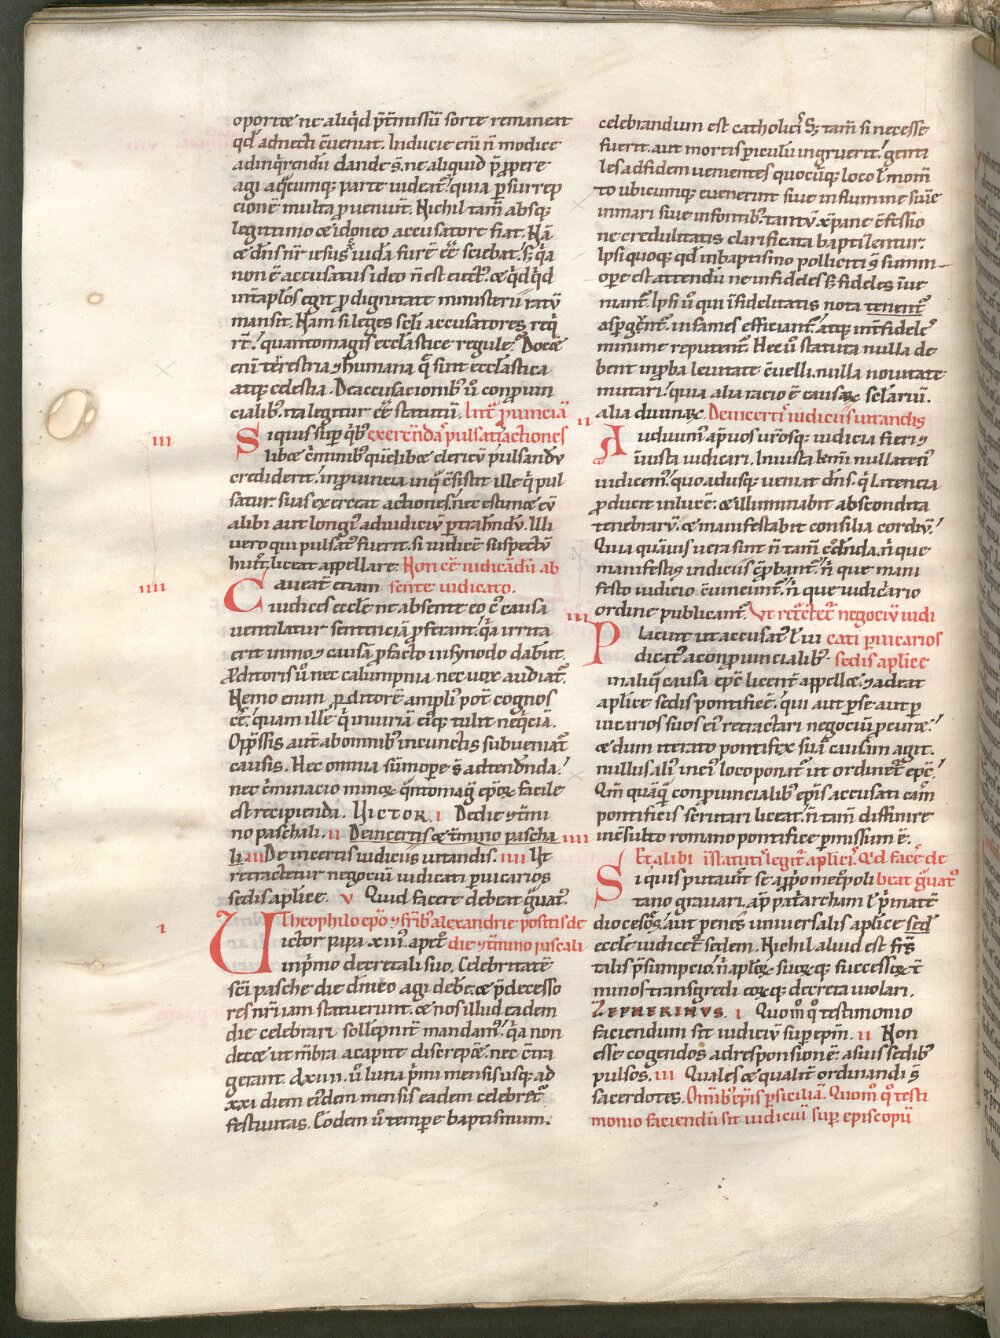 oportet ne aliq̇d p̄t̄missū forte remaneat
qd̄ adnecti c̄ueniat. Inducie eni n̄ modice
ad inq̇rendū dande s̄. ne aliquid p̄ppere
agi aq̄cumq; parte uideat᷑. quia ꝑ surrep
cionē multa ꝓueniunt. Nichil tam̄ absq;
legittimo & idoneo accusatore fiat. Nā
& dn̄s nr̄ iesus iudā furē eē sciebat. sꝫ q̇a
non ē accusatus ideo n̄ est eiect᷑. & q̇dq̇d
int̄ aplos egit ꝓ dignitate ministerii ratū
mansit. Nam si leges scl̄i accusatores req̇
rt̄. quantomagis eccl̄astice regule. Docet
eni terrestria ⁊ humana q̄ sunt eccl̄astica
atq; celestia. De accusacionib᷑ ū conꝓuin
cialib᷑. ita legitur eē statutū. Int᷑ ꝓuinciā
iii S iquis sup̄ q̇b᷑ exerendas pulsati actiones
libet c̄minib᷑ quēlibet clericū pulsandū
crediderit. in ꝓuincia inq̇ c̄sistit ille q̇ pul
satur. suas exerceat actiones. nec estimet eū
alibi aut longi᷑ ad iudiciū ꝑtrahendū. Illi
uero qui pulsat᷑ fuerit. si iudicē suspectū
hūit. liceat appellare. Non eē iudicandū ab
iiii C aueant etiam sente iudicato.
iudices eccl̄e ne absente eo c᷑ causa
uentilatur sentenciā ꝓferant. q̇a irrita
erit immo ⁊ causam ꝓ facto in synodo dabunt.
Proditoris ū nec calumpnia nec uox audiat᷑.
Nemo enim ꝓditorē ampli᷑ pot᷑ cognos
cē. quam ille q̇ iniuriā cuiq; tulit neq̇cia.
Opp̄ssis aut̄ ab omnib᷑ in cunctis subueniat᷑
causis. Hec omnia sūmope s̄ adtendnda.
nec c̄minacio minor᷑ q̄ntomagi ep̄or᷑ facile
est recipienda. VICTOR. i Dedie ⁊ t̄mi
no paschali. ii De incertis & t̄mino pascha
li. iii De incertis iudiciis uitandis. iiii Ut
retractetur negociū iudicati ꝑ uicarios
sedis aplice. v Quid facere debeat g̃uat᷑.
i U Theophilo ep̄o ⁊ frīb᷑ alexandrie positis de
ictor papa .xiiii. apcɫ die ⁊ t̄mino pascali
in p̄mo decretali suo. Celebritatē
scī pasche die dm̄eo agi debet. & p̄decesso
res nr̄i iam statuerunt. & nos illud eadem
die celebrari sollēpnit̄ mandam᷑. q̇a non
decet ut mb̄ra a capite discrepet. nec c̄tra
gerant. A xiiii. ū luna p̄mi mensis usq; ad
xxi diem ei᷑dem mensis eadem celebret᷑
festiuitas. Eodem ū tempe baptismum
celebrandum est catholici᷑. Sꝫ tam̄ si necesse
fuerit. aut mortis ꝑiculū ingruerit. genti
les ad fidem uenientes quocūq; loco ɫ mom̄
to ubicumq; euenerint siue in flumine siue
in mari siue in fontib᷑. tantū xp̄iane c̄fessio
ne credulitatis clarificata baptizentur.
Ipsi quoq; qd̄ in baptismo polliciti s̄ summ
ope est attendū ne infideles sꝫ fideles īue
niant᷑. Ipsi ū qui īfidelitatis nota tenent᷑
aspgent᷑. infames efficiant᷑. atq; int̄ fidele᷑
minime reputent᷑. Hec ū statuta nulla de
bent inꝓba leuitate c̄uelli. nulla nouitate
mutari. quia alia racio ē causar᷑ scl̄ariū.
alia diuinar᷑. De incerti᷑ iudiciis uitandis
ii A udiuim᷑ ap̄ uos ur̄osq; iudicia fieri ⁊
īiusta iudicari. Iniusta temi nullaten᷑
iudicem᷑. quo adusq; ueniat dn̄s. q̇ latencia
ꝓducit in lucē. & illuminabit abscondita
tenebrarū. & manifestabit consilia cordiū.
Quia quāuis uera sint n̄ tam̄ c̄dnda. n̄ que
manifestis indiciis ꝓbant᷑. n̄ que mani
festo iudicio c̄uincunt᷑. n̄ que iudiciario
ordine publicant᷑. Ut retctet᷑ negociū iudi
iii P lacuit ut accusat᷑ ɫ iu cati ꝑ uicarios
dicat᷑ a conꝓuincialib᷑ sedis aplice
in aliq̇ causa ep̄c licent᷑ appellet. ⁊ adeat
aplice sedis pontificē. qui aut ꝑ se aut ꝑ
uicarios suos ei᷑ retractari negociū ꝓcuret.
& dum iterato pontifex suā causam agit.
nullus ali᷑ in ei᷑ loco ponat᷑ ut ordinet᷑ ep̄c.
Qm̄ quāq̇ conꝓuincialib᷑ ep̄is accusati cam̄
pontificis scrutari liceat. n̄ tam̄ diffinire
inc̄sulto romano pontifice ꝑmissum ē.
iiii Et alibi īstatuti᷑ legit᷑ aplici᷑. Qd̄ facē de
S iquis putauit se a ꝓpo met᷑poli beat g̃uat᷑
tano grauari. ap̄ pat᷑archam ɫ p̄matē
dioceseos. aut penes uniuersalis aplice sed
eccl̄e iudicet᷑ sedem. Nichil aliud est frs̄
talis p̄sumpcio. n̄ aplor᷑ suor᷑q; successor᷑ t̄
minos transgredi eor᷑q; decreta uiolari.
ZEPHERINUS. i Quom̊ q̊ testimonio
faciendum sit iudiciū sup ep̄m. ii Non
esse cogendos ad responsionē. a suis sedib᷑
pulsos. iii Quales & qualit̄ ordinandi s̄
sacerdotes. Om̄ib᷑ ep̄is ꝑ siciliā. Quom̊ q̊ testi
monio faciendū sit iudiciū sup episcopū